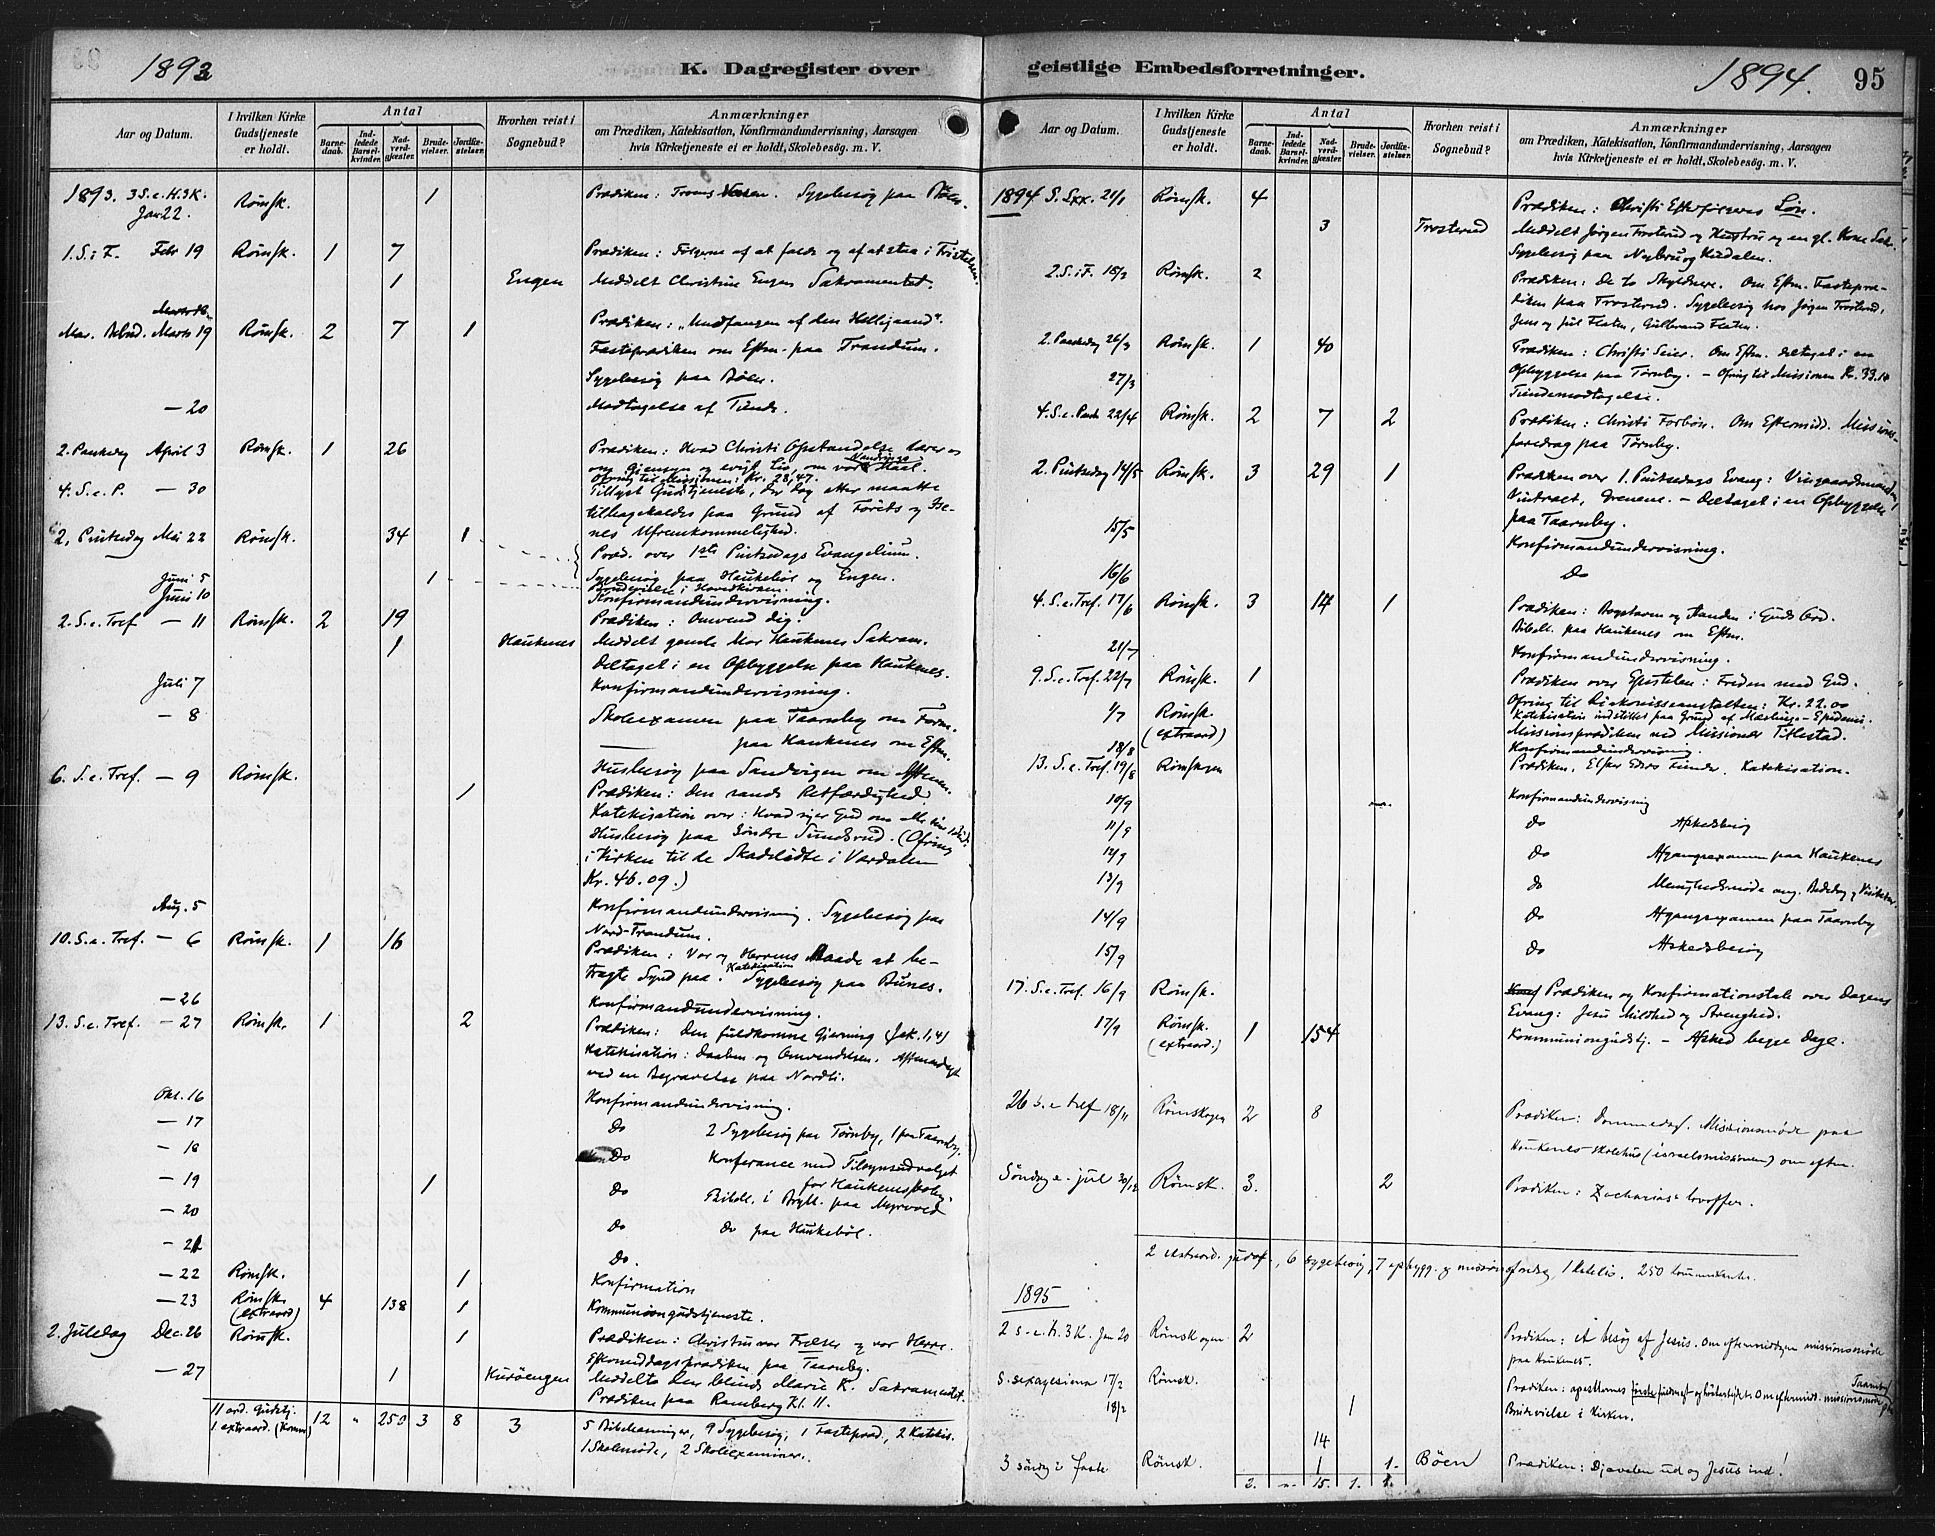 1893
K. Dagregister over
Aar og Datum.
I hvilken Kirke Gudstjeneste er holdt.
Antal
Barnedaab.
Indledede Barselkvinder.
Nadverdgjæster.
Brudevielser.
Jordfæstelser.
Hvorhen reist i Sognebud?
Anmærkninger
om Prædiken, Katekisation, Konfirmandundervisning, Aarsagen
hvis Kirketjeneste ei er holdt, Skolebesøg. m. V.
1893. 3 S. e. H. 3 K. Jan 22. Rømsk. 1 Prædiken: Troens Sygebesøg paa Bøen.
1. S. i F. Febr 19 Rømsk. 1 7 Prædiken: Følgerne af at falde og af at staa i Fristelsen.
1 Engen Meddelt Christine Engen Sakramentet.
Mar. Bebud. Marts 19 Rømsk. 2 7 1 Prædiken: "Undfangen af den Helligaand".
Fasteprædiken om Eftm. paa Trandum.
Sygebesøg paa Bøen.
— 20 Modtagelse af Tiende.
2. Paaskedag April 3 Rømsk. 1 26 Prædiken: Hvad Christi Opstandelse lærer os
om Gjensyn og evigt Liv, om vort Vandrings Maal.
Ofring til Missionen: Kr. 28,47.
4. S. e. P. — 30 Tillyst Gudstjeneste, der dog atter maatte
tilbagekaldes paa Grund af Førets og Isenes Ufremkommelighed.
2. Pintsedag Mai 22 Rømsk. 34 1 Præd. over 1ste Pintsedags Evangelium.
Sygebesøg paa Haukebøl og Engen.
Juni 5 1 Brudevielse i Hovedkirken.
Juni 10 Konfirmandundervisning.
2. S. e. Tref — 11 Rømsk. 2 19 Prædiken: Omvend dig.
1 Haukenes Meddelt gamle Mor Haukenes Sakram.
Deltaget i en Opbyggelse paa Haukenes.
Juli 7 Konfirmandundervisning.
— 8 Skoleexamen paa Taarnby om Form.
paa Haukenes om Eftm.
Husbesøg paa Sandvigen om Aftenen.
6. S. e. Tref. — 9 Rømsk. 1 Prædiken: Den sande Retfærdighed.
Katekisation over: Hvad siger Gud om
Husbesøg paa Søndre Sundsrud. (Ofring
i Kirken til de Skadelidte i Værdalen
Kr. 46.09.)
Aug. 5 Konfirmandundervisning. Sygebesøg paa
Nord-Trandum.
10. S. e. Tref. — 6 Rømsk. 1 16 Prædiken: Vor og Herrens Maade at betragte
Synd paa. Katekisation Sygebesøg paa Bunes.
— 26 Konfirmandundervisning.
13. S. e. Tref. — 27 Rømsk. 1 2 Prædiken: Den fuldkomne Gjerning (Jak. 1,4)
Katekisation: Daaben og Omvendelsen.
ved en Begravelse paa Nordli.
Okt. 16 Konfirmandundervisning.
— 17 Do 2 Sygebesøg paa Tørnby, 1 paa Taarnby.
— 18 Do Konferance med Tilsynsudvalget
for Haukenes skole.
— 19 1 Do Bibell. i Bryll. paa Myrvold
— 20 Do Do paa Haukebøl.
— 21 Do.
— 22 Rømsk. 1 Konfirmation
— 23 Rømsk. (extraord) 4 138 1 Kommuniongudstjeneste.
2. Juledag Dec. 26 Rømsk. 1 Prædiken: Christus vor Frelser og vor Herre.
Eftermiddagsprædiken paa Taarnby.
— 27 1 Kurøengen Meddelte den blinde Marie K. Sakramentet.
Prædiken paa Ramberg Kl. 11.
11 ord. Gudstj. 1 extraord. (Komm) 12 " 250 3 8 3 5 Bibellæsninger, 9 Sygebesøg, 1 Fastepræd., 2 Katekis.
1 Skolemøde, 2 Skoleexaminer.
geistlige Embedsforretninger.
1894.
95
Aar og Datum.
I hvilken Kirke Gudstjeneste er holdt.
Antal
Barnedaab.
Indledede Barselkvinder.
Nadverdgjæster.
Brudevielser.
Jordfæstelser.
Hvorhen reist i Sognebud?
Anmærkninger
om Prædiken, Katekisation, Konfirmandundervisning, Aarsagen
hvis Kirketjeneste ei er holdt, Skolebesøg. m. V.
1894 S. Sxx. 21/1 Rømsk. 4 Prædiken: Christi Efterfølgeres Løn.
3 Trosterud Meddelt Jørgen Trosterud og Hustru og en gl. Kone Sak.
Sygebesøg paa Nybru og Kurdalen.
2. S. i F. 18/2 Rømsk. 2 Prædiken: De to Skyldnere. Om Eftm. Fasteprædiken
paa Trosterud. Sygebesøg hos Jørgen Trosterud,
Jens og Jul Flaten, Gulbrand Flaten.
2. Paaskedag 26/3 Rømsk. 1 40 Prædiken: Christi Seier. Om Eftm. deltaget i en
Opbyggelse paa Tørnby. - Ofring til Missionen Kr. 33.10
27/3 Tiendemodtagelse.
4. S. e. Pask 22/4 Rømsk. 2 7 2 Prædiken: Christi Forbøn. Om Eftermidd. Missionsforedrag
paa Tørnby.
2. Pintsedag 14/5 Rømsk. 3 29 1 Prædiken over 1. Pintsedags Evang: Vingaardsmanden,
Vintræet, Grenene. - Deltaget i en Opbyggelse
paa Taarnby.
15/5 Konfirmandundervisning.
16/6 Do
4. S. e. Tref. 17/6 Rømsk. 3 14 1 Prædiken: Bogstaven og Aanden i Guds Ord.
Bibell. paa Haukenes om Eftm.
21/7 Konfirmandundervisning.
9. S. e. Tref. 22/7 Rømsk. 1 Prædiken over Epistelen: Freden med Gud.
Ofring til Diakonisseanstalten: Kr. 22.00
Katekisation indstillet paa Grund af Mæslinge-Epidemi.
1/7 Rømsk. (extraord) Missionsprædiken ved Missionær Tillestad.
18/8 Konfirmandundervisning.
13. S. e. Tref. 19/8 Rømskogen Prædiken. Elsker Eders Fiender. Katekisation.
10/9 Konfirmandundervisning
11/9 Do Afskedsbesøg
12/9 Do Afgangsexamen paa Haukenes
13/9 Do Menighedsmøde ang. Bededag og Visitats.
14/9 Do Afgangsexamen paa Taarnby
15/9 Do Afskedsbesøg
17. S. e. Tref. 16/9 Rømsk. Prædiken og Konfirmationstale over Dagens
Evang: Jesu Mildhed og Strenghed.
17/9 Rømsk. (extraord.) 1 154 Kommuniongudstj. - Afsked begge Dage.
26 S. e. tref 18/11 Rømskogen 2 8 Prædiken: Dommedag. Missionsmøde paa
Haukenes skolehus (israelsmissionen) om eftm.
Søndag e. jul 30/12 Rømsk. 3. 2 Prædiken: Zacharias's lovoffer.
2 extraord. gudst., 6 sygebesøg, 7 opbygg. og missionsforedrag, 1 katekis. 250 kommunikanter.
1895
2 s. e. h. 3 K. Jan 20 Rømskogen 2 Prædiken: Et besøg af Jesus. Om eftermiddagen missionsmøde
paa Haukenes.
S. sexagesima 17/2 Rømsk. Prædiken: apostlernes Om eftermidd. missionsmøde paa Taarnby
18/2 1 Brudevielse i Kirken.
14
3 søndag i faste Rømsk. 1 1. Bøen Prædiken: Djævelen ud og Jesus ind!
2. " 15. 1. 1.